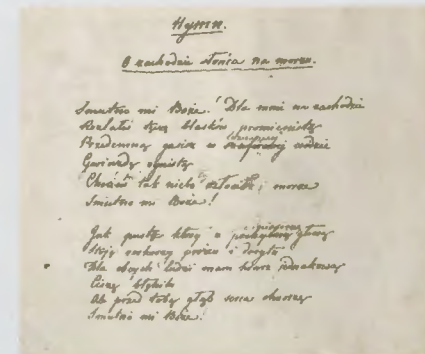 Hymn.
O zachodzie słońca na morzu.
Smutno mi Boże! Dla mnie na zachodzie
Rozlałeś tęczę blasków promienistą
Przedemną gasisz w wodzie
Gwiazdę ognistą
Choć tak niebo ty złocisz i morze
Smutno mi Boże!
Jak puste kłosy z głową
Stoję rozkoszy próżen i dosytu
Dla obcych ludzi mam twarz jednakową
Ciszę błękitu
Ale przed tobą głąb serca otworzę
Smutno mi Boże!